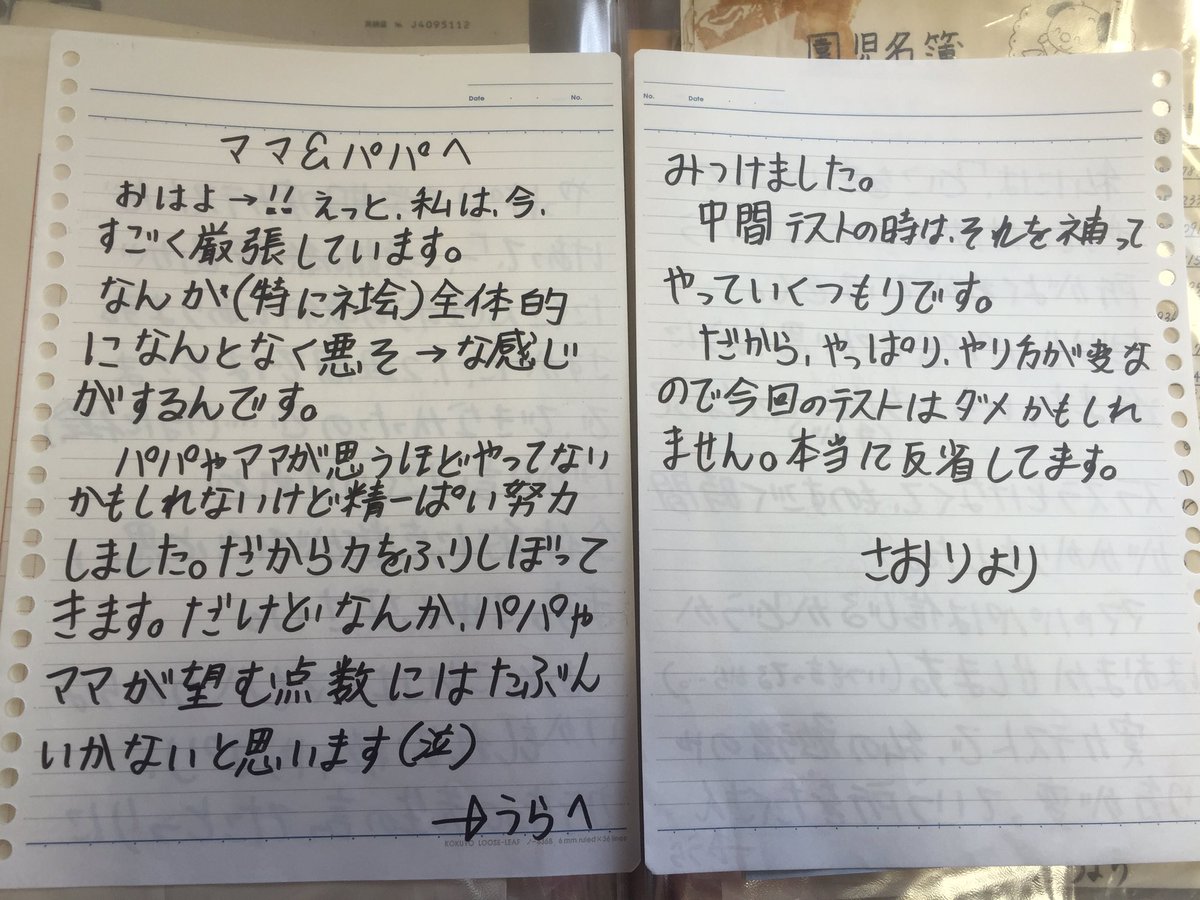 J4095112
Date ・ ・ No.
ママ&パパへ
おはよ→!! えっと、私は、今、
すごく厳張しています。
なんが(特に社会)全体的
になんとなく悪そ→な感じ
がするんです。
パパやママが思うほどやってない
かもしれないけど精一ぱい努力
しました。だから力をふりしぼって
きます。だけどなんか、パパや
ママが望む点数にはたぶん
いかないと思います(泣)
→うらへ
KOKUYO LOOSE-LEAF ノ-836B 6 mm ruled×36 lines
園児名簿
No. Date ・ ・
みつけました。
中間テストの時は、それを補って
やっていくつもりです。
だから、やっぱり、やり方が変な
ので今回のテストはダメかもしれ
ません。本当に反省してます。
さおりより